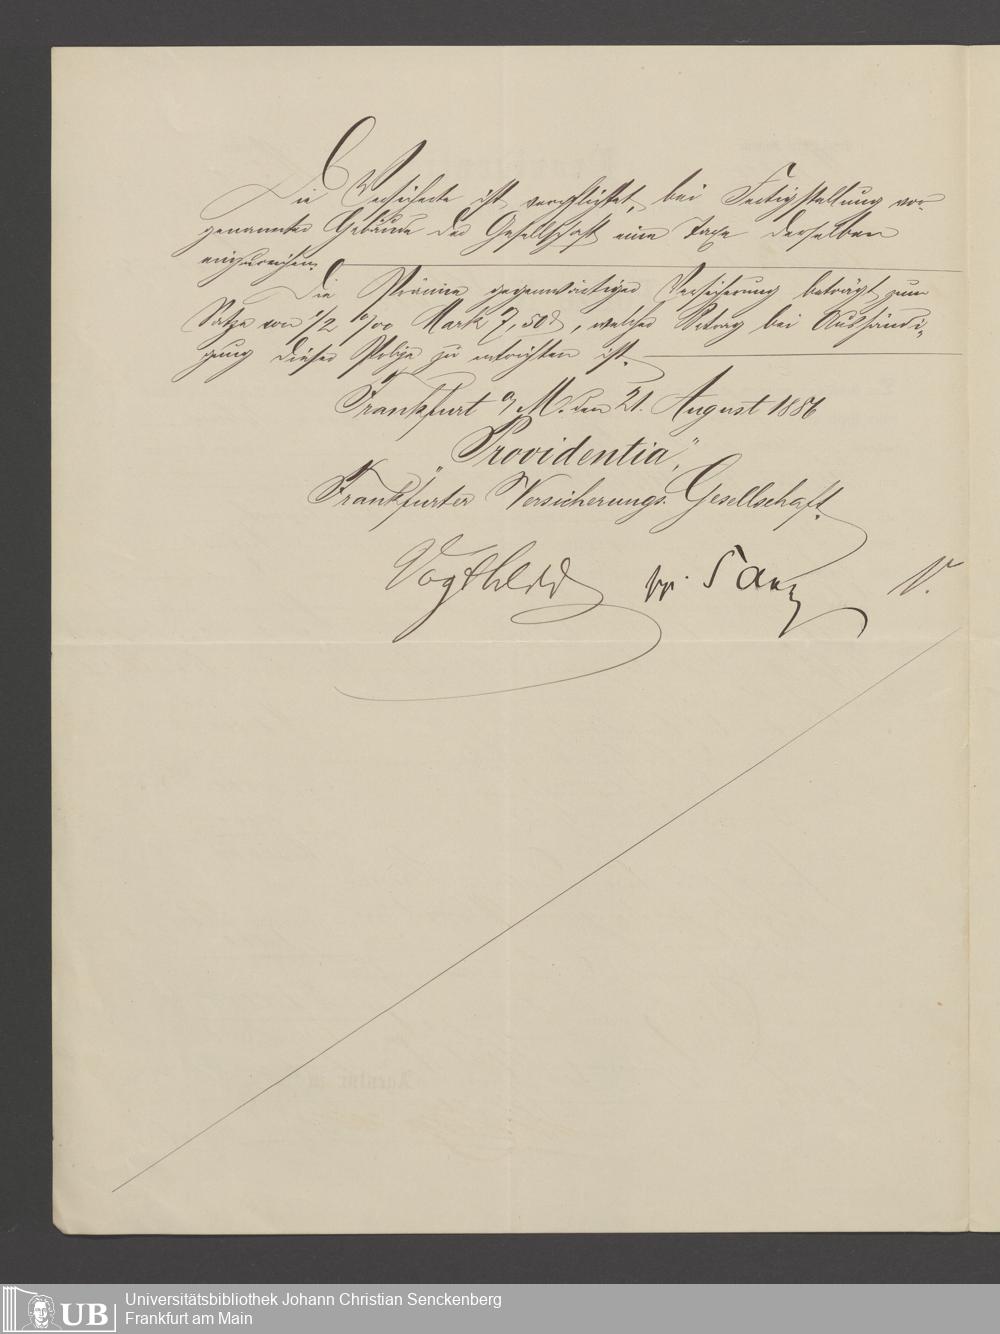 Die Versicherte ist verpflichtet, bei Fertigstellung vor-
genannter Gebäude der Gesellschaft eine Taxe derselben
einzureichen.
Die Prämie gegenwärtiger Versicherung beträgt zum
Satze von 1/2 ‰ Mark 7,50 ₰, welcher Betrag bei Aushändi-
gung dieser Polize zu entrichten ist.
Frankfurt a/M. den 21. August 1886
"Providentia",
Frankfurter Versicherungs-Gesellschaft.
V.
Universitätsbibliothek Johann Christian Senckenberg
Frankfurt am Main
UB